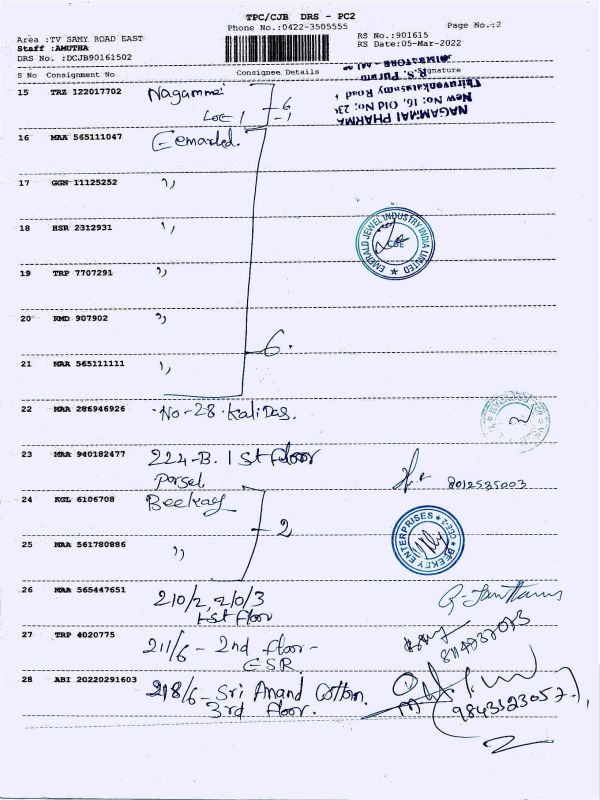 TPC/CJB DRS - PC2
Phone No.:0422-3505555
Page No.:2
Area :TV SAMY ROAD EAST
Staff :AMUTHA
DRS No. :DCJB90161502
RS No.:901615
RS Date:05-Mar-2022
S No Consignment No Consignee Details Signature
15 TRZ 122017702 Nagammai
LOC 1
6
-1
NAGAMMAI PHARMA
New No: 16, Old No: 23
Thiruvenkatasamy Road
R.S. Puram
16 MAA 565111047
17 GGN 11125252 ,,
18 HSR 2312931 ,,
EMERALD JEWEL INDUSTRY INDIA LIMITED
CBE
19 TRP 7707291 ,,
20 RMD 907902 ,,
6.
21 MAA 565111111 ,,
22 MAA 286946926 No-28. Kalidas.
23 MAA 940182477 224-B. 1st Floor
Parsel
8012525003
24 KGL 6106708 Beekay
2
BEEKEY ENTERPRISES CBE-2
25 MAA 561780886 ,,
26 MAA 565447651 210/2, 210/3
1st Floor
27 TRP 4020775 211/6 - 2nd floor -
ESR
28 ABI 20220291603 218/6 - Sri Anand Cotton.
3rd Floor.
2